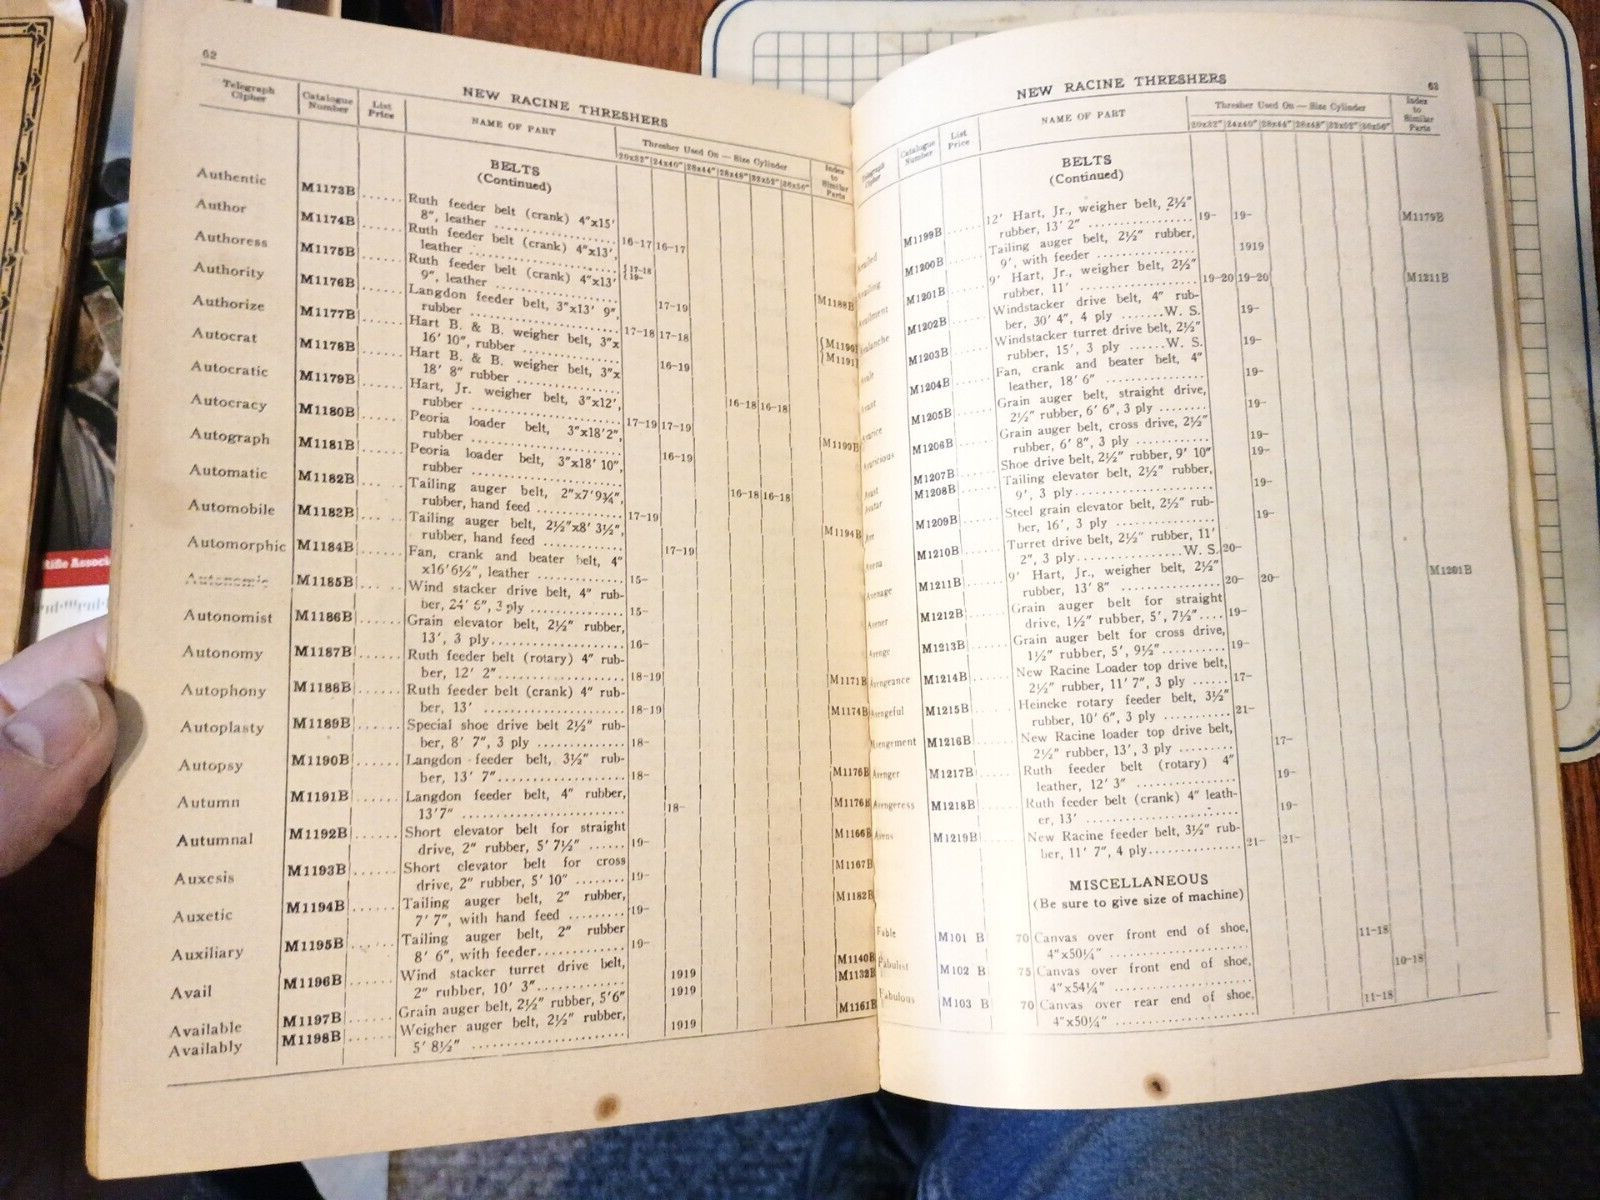 62
NEW RACINE THRESHERS
Telegraph Cipher Catalogue Number List Price NAME OF PART Thresher Used On — Size Cylinder Index to Similar Parts
20x32" 24x40" 28x44" 28x48" 32x52" 36x56"
BELTS
(Continued)
Authentic M1173B ...... Ruth feeder belt (crank) 4"x15'
8", leather 16-17 16-17
Author M1174B ...... Ruth feeder belt (crank) 4"x13',
leather 17-18 19-
Authoress M1175B ...... Ruth feeder belt (crank) 4"x13'
9", leather 17-19
Authority M1176B ...... Langdon feeder belt, 3"x13' 9",
rubber 17-18 17-18 M1188B
Authorize M1177B ...... Hart B. & B. weigher belt, 3"x
16' 10", rubber 16-19 M1190 M1191
Autocrat M1178B ...... Hart B. & B. weigher belt, 3"x
18' 8" rubber 16-18 16-18
Autocratic M1179B ...... Hart, Jr. weigher belt, 3"x12',
rubber 17-19 17-19 M1199B
Autocracy M1180B ...... Peoria loader belt, 3"x18'2",
rubber 16-19
Autograph M1181B ...... Peoria loader belt, 3"x18' 10",
rubber 16-18 16-18
Automatic M1182B ...... Tailing auger belt, 2"x7'9¾",
rubber, hand feed 17-19 M1194B
Automobile M1182B ...... Tailing auger belt, 2½"x8' 3½",
rubber, hand feed 17-19
Automorphic M1184B ...... Fan, crank and beater belt, 4"
x16'6½", leather 15-
Autonomic M1185B ...... Wind stacker drive belt, 4" rub-
ber, 24' 6", 3 ply 15-
Autonomist M1186B ...... Grain elevator belt, 2½" rubber,
13', 3 ply 16-
Autonomy M1187B ...... Ruth feeder belt (rotary) 4" rub-
ber, 12' 2" 18-19 M1171B
Autophony M1188B ...... Ruth feeder belt (crank) 4" rub-
ber, 13' 18-19 M1174B
Autoplasty M1189B ...... Special shoe drive belt 2½" rub-
ber, 8' 7", 3 ply 18-
Autopsy M1190B ...... Langdon feeder belt, 3½" rub-
ber, 13' 7" 18- M1176B
Autumn M1191B ...... Langdon feeder belt, 4" rubber,
13'7" 18- M1176B
Autumnal M1192B ...... Short elevator belt for straight
drive, 2" rubber, 5' 7½" 19- M1166B
Auxesis M1193B ...... Short elevator belt for cross
drive, 2" rubber, 5' 10" 19- M1167B
Auxetic M1194B ...... Tailing auger belt, 2" rubber,
7' 7", with hand feed 19- M1182B
Auxiliary M1195B ...... Tailing auger belt, 2" rubber
8' 6", with feeder 19-
Avail M1196B ...... Wind stacker turret drive belt,
2" rubber, 10' 3" 1919 M1140B
Available M1197B ...... Grain auger belt, 2½" rubber, 5'6" 1919 M1132B
Availably M1198B ...... Weigher auger belt, 2½" rubber,
5' 8½" 1919 M1161B
NEW RACINE THRESHERS
63
Telegraph Cipher Catalogue Number List Price NAME OF PART Thresher Used On — Size Cylinder Index to Similar Parts
20x32" 24x40" 28x44" 28x48" 32x52" 36x56"
BELTS
(Continued)
M1199B ...... 12' Hart, Jr., weigher belt, 2½"
rubber, 13' 2" 19- 19- M1179B
M1200B ...... Tailing auger belt, 2½" rubber,
9', with feeder 1919
M1201B ...... 9' Hart, Jr., weigher belt, 2½"
rubber, 11' 19-20 19-20 M1211B
M1202B ...... Windstacker drive belt, 4" rub-
ber, 30' 4", 4 ply W. S. 19-
Avalanche M1203B ...... Windstacker turret drive belt, 2½"
rubber, 15', 3 ply W. S. 19-
M1204B ...... Fan, crank and beater belt, 4"
leather, 18' 6" 19-
M1205B ...... Grain auger belt, straight drive,
2½" rubber, 6' 6", 3 ply 19-
M1206B ...... Grain auger belt, cross drive, 2½"
rubber, 6' 8", 3 ply 19-
M1207B ...... Shoe drive belt, 2½" rubber, 9' 10" 19-
M1208B ...... Tailing elevator belt, 2½" rubber,
9', 3 ply 19-
M1209B ...... Steel grain elevator belt, 2½" rub-
ber, 16', 3 ply 19-
M1210B ...... Turret drive belt, 2½" rubber, 11'
2", 3 ply W. S. 20-
Avenage M1211B ...... 9' Hart, Jr., weigher belt, 2½"
rubber, 13' 8" 20- 20- M1201B
Avener M1212B ...... Grain auger belt for straight
drive, 1½" rubber, 5', 7½" 19-
Avenge M1213B ...... Grain auger belt for cross drive,
1½" rubber, 5', 9½" 19-
Avengeance M1214B ...... New Racine Loader top drive belt,
2½" rubber, 11' 7", 3 ply 17-
Avengeful M1215B ...... Heineke rotary feeder belt, 3½"
rubber, 10' 6", 3 ply 21-
Avengement M1216B ...... New Racine loader top drive belt,
2½" rubber, 13', 3 ply 17-
Avenger M1217B ...... Ruth feeder belt (rotary) 4"
leather, 12' 3" 19-
Avengeress M1218B ...... Ruth feeder belt (crank) 4" leath-
er, 13' 19-
Avens M1219B ...... New Racine feeder belt, 3½" rub-
ber, 11' 7", 4 ply 21- 21-
MISCELLANEOUS
(Be sure to give size of machine)
Fable M101 B 70 Canvas over front end of shoe,
4"x50¼" 11-18
Fabulist M102 B 75 Canvas over front end of shoe,
4"x54¼" 10-18
Fabulous M103 B 70 Canvas over rear end of shoe,
4"x50¼" 11-18